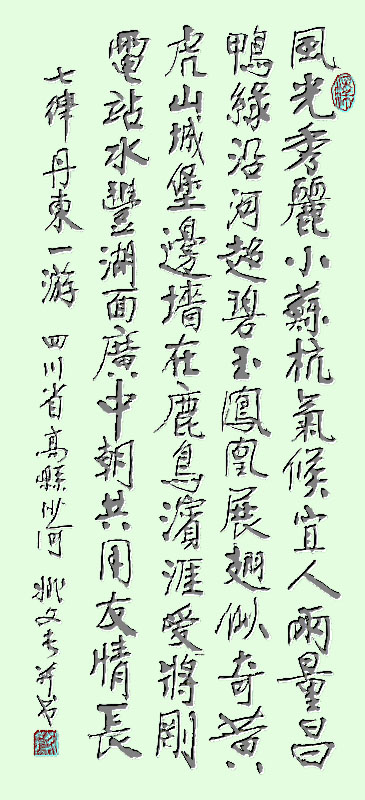 風光秀麗小蘇杭氣候宜人雨量昌
鴨緣沿河超碧玉鳳凰展翅似奇黃
虎山城堡邊墻在鹿島濱涯愛將剛
電站水豐湖面廣中朝共用友情長
七律丹東一游 四川省高縣沙河 姚文